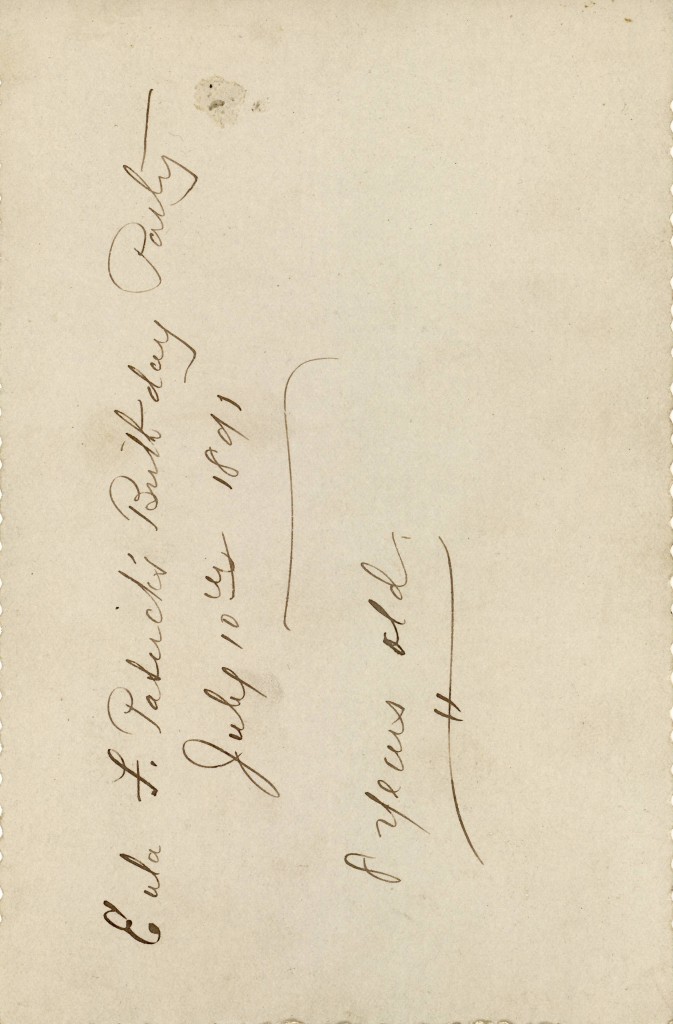 Eula F. Patrick's Birthday Party —
July 10th 1891
8 years old.